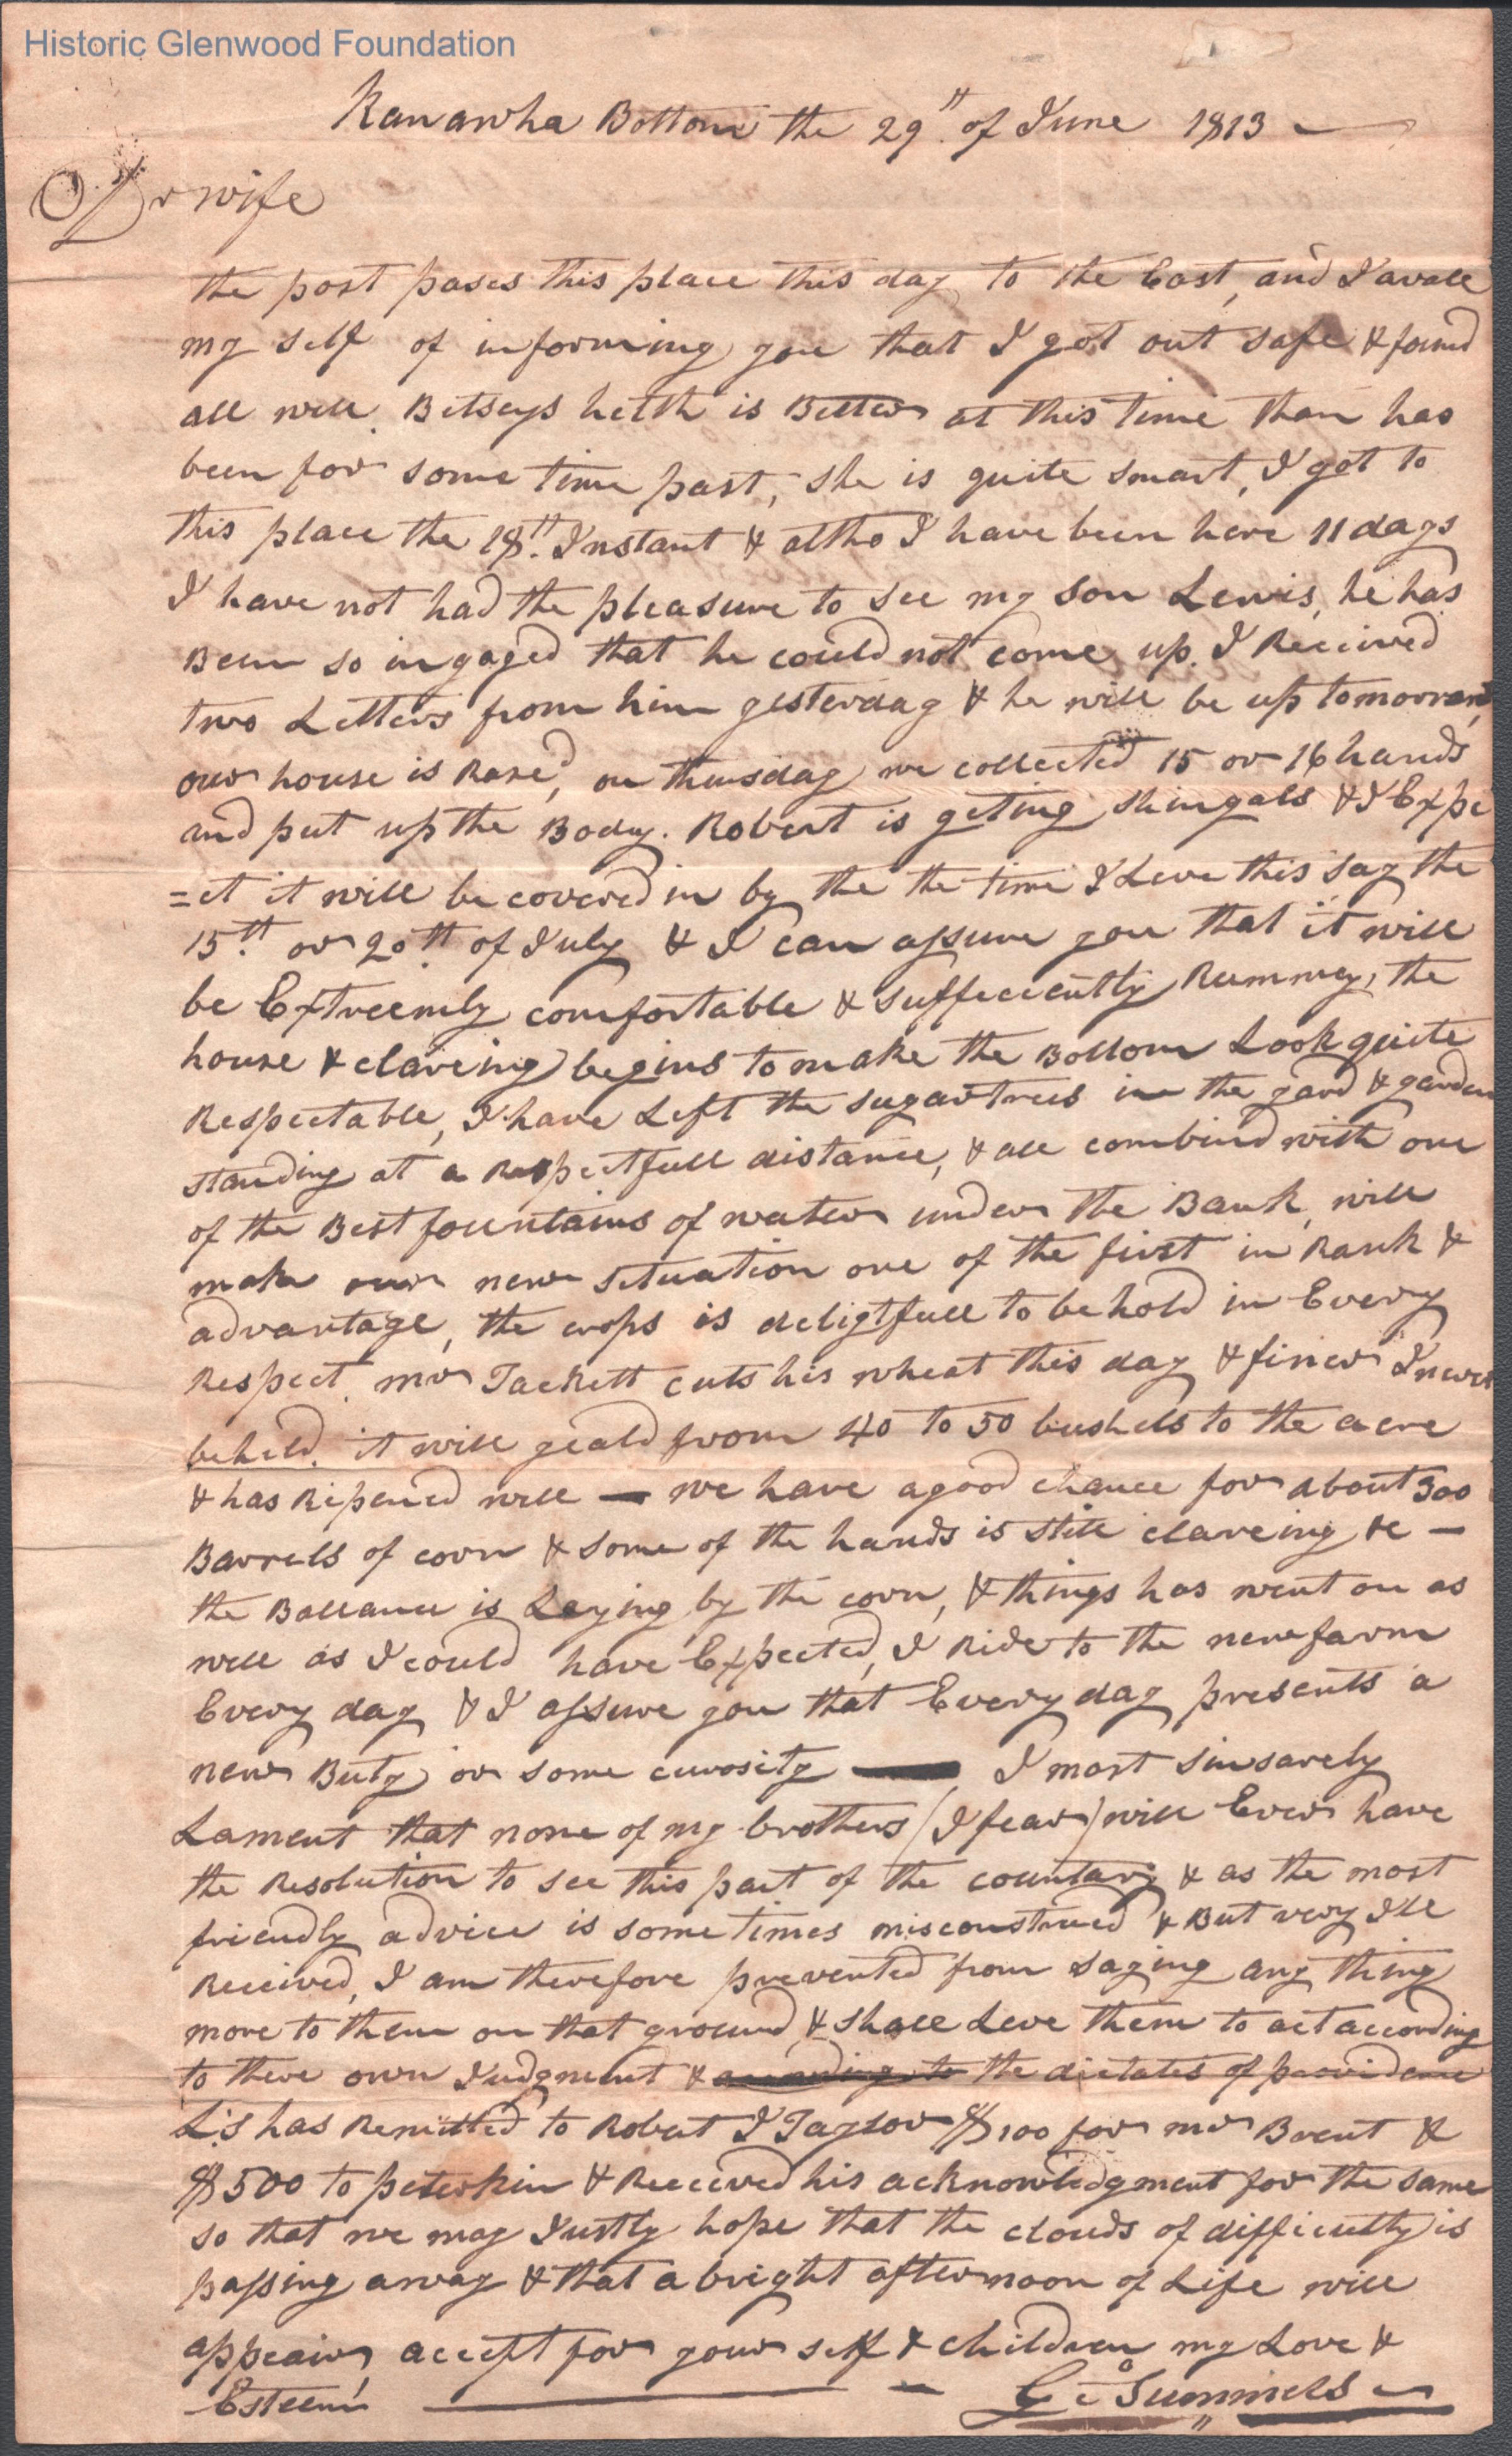 Historic Glenwood Foundation
Kanawha Bottom the 29th of June 1813
Dr wife
the post pases this place this day to the East, and I avale
my self of informing you that I got out safe & found
all well. Betseys helth is Better at this time than has
been for some time past, she is quite smart, I got to
this place the 18th Instant & altho I have been here 11 days
I have not had the pleasure to see my son Lewis, he has
Been so ingaged that he could not come up. I Received
two Letters from him yesterday & he will be up tomorrow,
our house is Rased, on thursday we collected 15 or 16 hands
and put up the Body. Robert is geting shingals & I Expe
=ct it will be covered in by the the time I Leve this say the
15th or 20th of July & I can assure you that it will
be Extreemly comfortable & suffeciently Rummey, the
house & clareing begins to make the Bottom Look quite
Respectable, I have Left the sugartrees in the yard & garden
standing at a Respectfull distance, & all combind with one
of the Best fountains of water under the Bank, will
make our new situation one of the first in Rank &
advantage, the crops is deligtfull to behold in Every
Respect. mr Tackett cuts his wheat this day & finer I never
beheld. it will yeald from 40 to 50 bushels to the acre
& has Ripened well — we have a good chance for about 300
Barrels of corn & some of the hands is still clareing &c —
the Ballance is Laying by the corn, & things has went on as
well as I could have Expected, I Ride to the new farm
Every day & I assure you that Every day presents a
new Buty or some curosity — I most sinsarely
Lament that none of my brothers (I fear) will Ever have
the Resolution to see this part of the countary & as the most
friendly advice is some times misconstrued & But very Ill
Received, I am therefore prevented from saying any thing
more to them on that ground & shall Leve them to act according
to there own Judgment & according to the dictates of providence
Ls has Remitted to Robert I Taylor $100 for mr Brent &
$500 to peterkin & Received his acknowledgment for the same
so that we may Justly hope that the clouds of difficulty is
passing away & that a bright afternoon of Life will
appear, accept for your self & children my Love &
Esteem — Go Summers